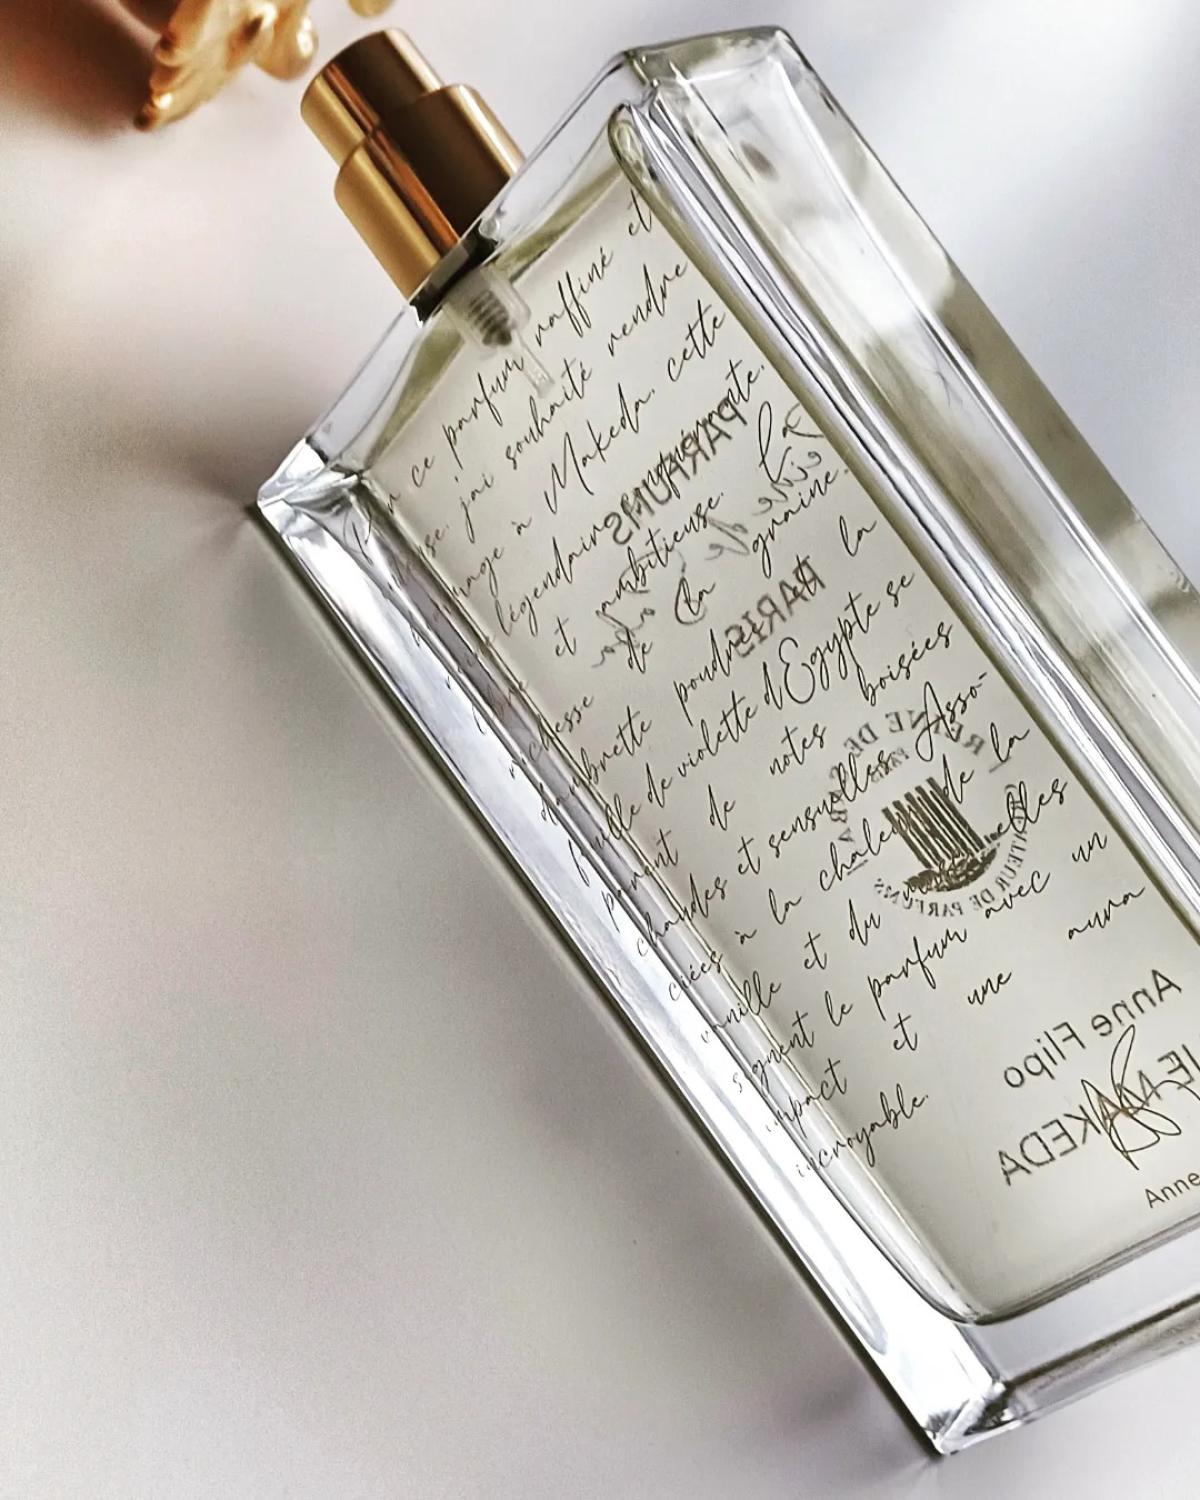 ce parfum raffiné et
j'ai souhaité rendre
à Makeda, cette
légendaire
et ambitieuse. La
richesse de la graine
d'ambrette poudrée, la
feuille de violette d'Egypte se
parent de notes boisées
chaudes et sensuelles. Asso-
ciées à la chaleur de la
vanille et du musc, elles
signent le parfum avec un
impact et une aura
incroyable.
Anne
PARFUMS
La Reine de
PARIS
REINE DE
PARIS
DE PARFUMS
Anne Flipo
MAKEDA